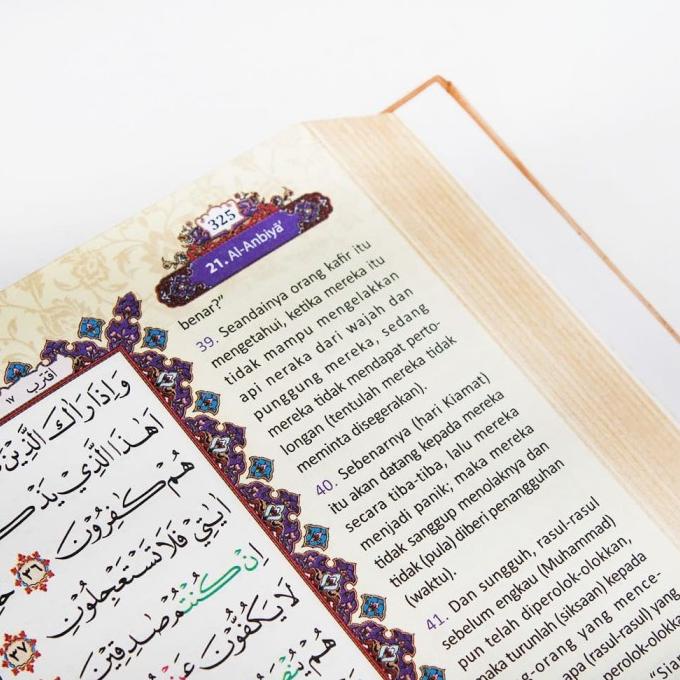 325
21. Al-Anbiyā'
benar?"
39. Seandainya orang kafir itu
mengetahui, ketika mereka itu
tidak mampu mengelakkan
api neraka dari wajah dan
punggung mereka, sedang
mereka tidak mendapat perto-
longan (tentulah mereka tidak
meminta disegerakan).
40. Sebenarnya (hari Kiamat)
itu akan datang kepada mereka
secara tiba-tiba, lalu mereka
menjadi panik; maka mereka
tidak sanggup menolaknya dan
tidak (pula) diberi penangguhan
(waktu).
41. Dan sungguh, rasul-rasul
sebelum engkau (Muhammad)
pun telah diperolok-olokkan,
maka turunlah (siksaan) kepada
-orang yang mence-
apa (rasul-rasul) yang
perolok-olokka
"Siap
اقترب ١٧
وَاِذَا رَاٰكَ الَّذِيْنَ
اَهٰذَا الَّذِيْ يَذْكُ
هُمْ كٰفِرُوْنَ ٣٦
اٰيٰتِيْ فَلَا تَسْتَعْجِلُوْنِ ٣٧
اِنْ كُنْتُمْ صٰدِقِيْنَ
لَا يَكُفُّوْنَ عَنْ
هُمْ يُنْصَ